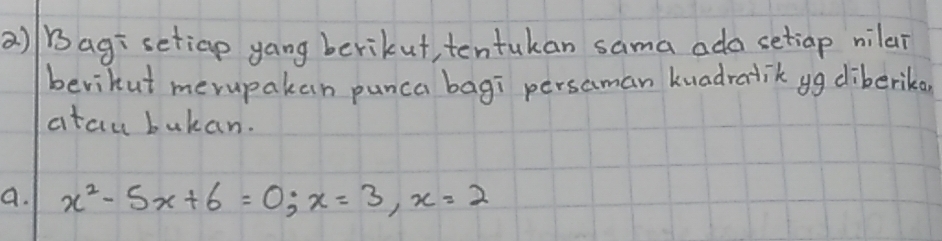 2) Bagi setiap yang berikut, tentukan sama ada setiap nilai
berikut merupakan punca bagi persaman kuadratik yg diberikan
atau bukan.
a. x² - 5x + 6 = 0; x = 3, x = 2